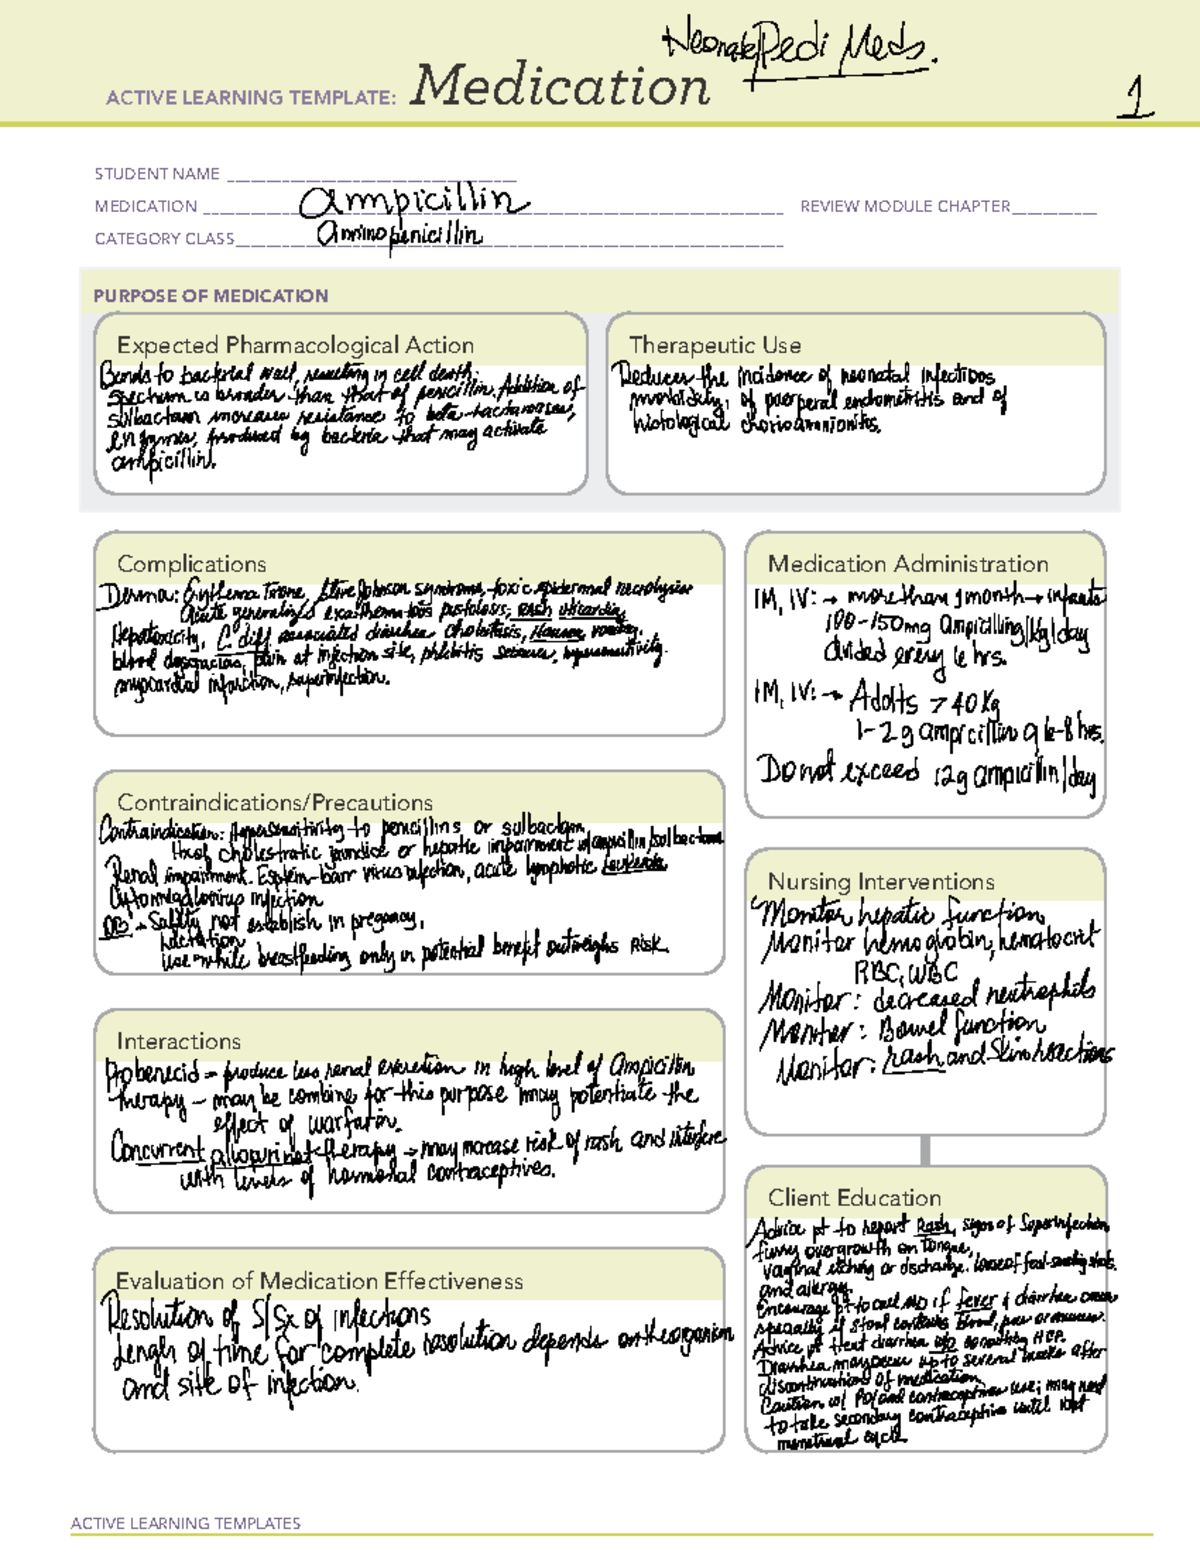 Neonate/Pedi Meds.
ACTIVE LEARNING TEMPLATE: Medication
1
STUDENT NAME
MEDICATION ampicillin REVIEW MODULE CHAPTER
CATEGORY CLASS aminopenicillin
PURPOSE OF MEDICATION
Expected Pharmacological Action
Binds to bacterial wall, resulting in cell death.
Spectrum is broader than that of penicillin. Addition of
sulbactam increases resistance to beta-lactamases,
enzymes, produced by bacteria that may activate
ampicillin.
Therapeutic Use
Reduces the incidence of neonatal infections
morbidity, of puerperal endometritis and of
histological chorioamnionitis.
Complications
Derma: Erythema, Syndrome, toxic epidermal necrolysis
acute generalized pustolosis, rash urticaria,
Hepatotoxicity, C diff associated diarrhea cholestasis, Nausea, vomiting,
blood dysgracias, pain at injection site, phlebitis seizures, hypersensitivity.
myocardial infarction, superinfection.
Contraindications/Precautions
Contraindication: Hypersensitivity to penicillins or sulbactam
Hx of cholestratic jaundice or hepatic impairment w/ ampicillin/sulbactam
Renal impairment. Epstein-barr virus infection, acute lymphotic leukemia
Cytomegalovirus infection
OB: - Safety not establish in pregancy,
lactation
use while breastfeeding only if potential benefit outweighs risk.
Interactions
Probenecid - produce less renal excretion in high level of Ampicillin
therapy - may be combine for this purpose may potentiate the
effect of warfarin.
Concurrent allopurinol therapy - may increase risk of rash and interfere
with levels of hormonal contraceptives.
Evaluation of Medication Effectiveness
Resolution of S/Sx of infections
Lengh of time for complete resolution depends on the organism
and site of infection.
Medication Administration
IM, IV: → more than 1 month → infants
100-150mg ampicilling/kg/day
divided every 6 hrs.
IM, IV: → Adults > 40 Kg
1-2 g ampicillin q 6-8 hrs.
Do not exceed 12g ampicillin/day
Nursing Interventions
Monitor hepatic function
Monitor hemoglobin, hematocrit
RBC, WBC
Monitor: decreased neutrophils
Monitor: Bowel function
Monitor: rash and Skin reactions
Client Education
Advice pt to report Rash, signs of Superinfection
furry overgrowth on tongue,
vaginal itching or discharge. loose of foul-smelling stools.
and allergy.
Encourage pt to call MD if fever & diarrhea occur
specially if stool contains blood, pus or mucus.
Advice pt treat diarrhea w/o consulting HCP.
Diarrhea may occur up to several weeks after
discontinuation of medication
Caution w/ PO/and contraceptives use; may need
to take secondary contraceptive until next
menstrual cycle
ACTIVE LEARNING TEMPLATES